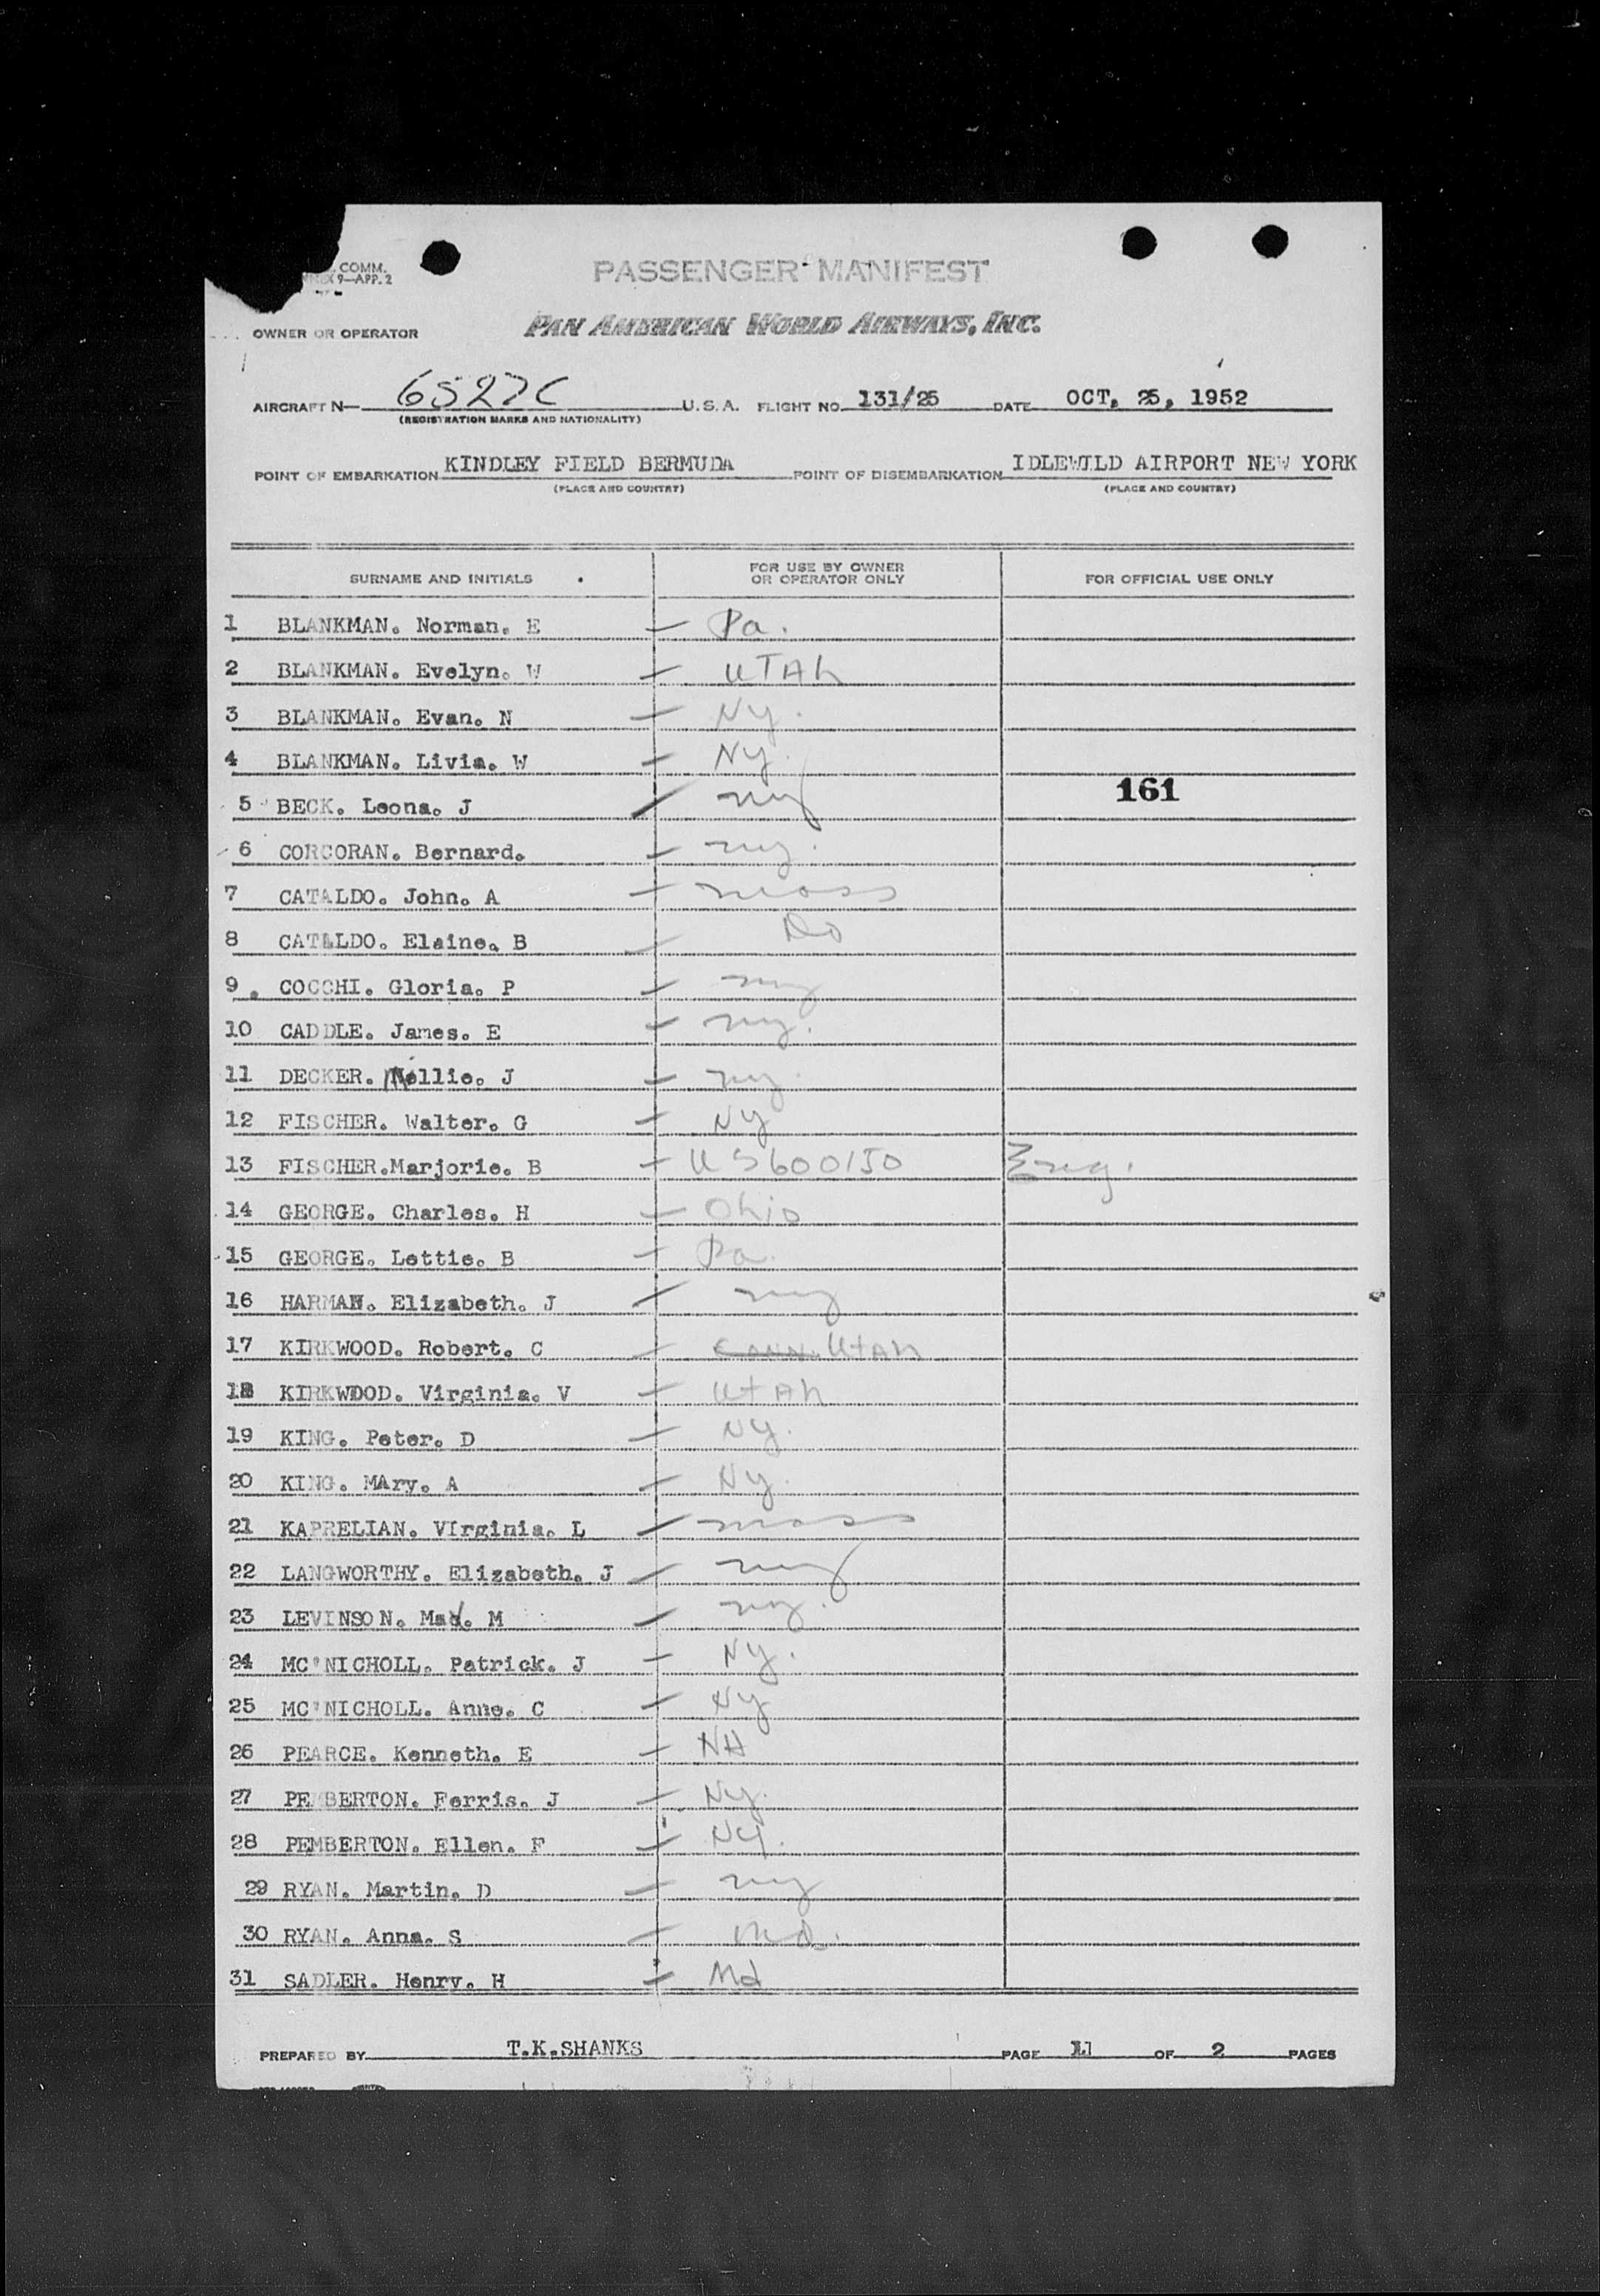 COMM.
9—APP. 2
PASSENGER MANIFEST
OWNER OR OPERATOR PAN AMERICAN WORLD AIRWAYS, INC.
AIRCRAFT N— 6527C U.S.A. FLIGHT NO. 131/25 DATE OCT, 25, 1952
(REGISTRATION MARKS AND NATIONALITY)
POINT OF EMBARKATION KINDLEY FIELD BERMUDA POINT OF DISEMBARKATION IDLEWILD AIRPORT NEW YORK
(PLACE AND COUNTRY) (PLACE AND COUNTRY)
SURNAME AND INITIALS FOR USE BY OWNER OR OPERATOR ONLY FOR OFFICIAL USE ONLY
1 BLANKMAN. Norman. E — Pa.
2 BLANKMAN. Evelyn. W — UTAh
3 BLANKMAN. Evan. N — NY.
4 BLANKMAN. Livia. W — NY.
161
5 BECK. Leona. J — ny
6 CORCORAN. Bernard. — ny.
7 CATALDO. John. A — mass
8 CATALDO. Elaine. B — Do
9. COCCHI. Gloria. P — ny
10 CADDLE. James. E — ny.
11 DECKER. Nellie. J — ny.
12 FISCHER. Walter. G — NY
13 FISCHER.Marjorie. B — US600150 Eng.
14 GEORGE. Charles. H — Ohio
15 GEORGE. Lettie. B — Pa.
16 HARMAN. Elizabeth. J — ny
17 KIRKWOOD. Robert. C — Conn. UtAh
18 KIRKWOOD. Virginia. V — UtAh
19 KING. Peter. D — NY.
20 KING. MAry. A — NY.
21 KAPRELIAN. VIrginia. L — mass
22 LANGWORTHY. Elizabeth. J — ny
23 LEVINSON. . M — ny.
24 MC'NICHOLL. Patrick. J — NY.
25 MC'NICHOLL. Anne. C — NY
26 PEARCE. Kenneth. E — NH
27 PEMBERTON. Ferris. J — NY.
28 PEMBERTON. Ellen. F — NY.
29 RYAN. Martin. D — ny
30 RYAN. Anna. S — md.
31 SADLER. Henry. H — Md
PREPARED BY T.K.SHANKS PAGE 1 OF 2 PAGES